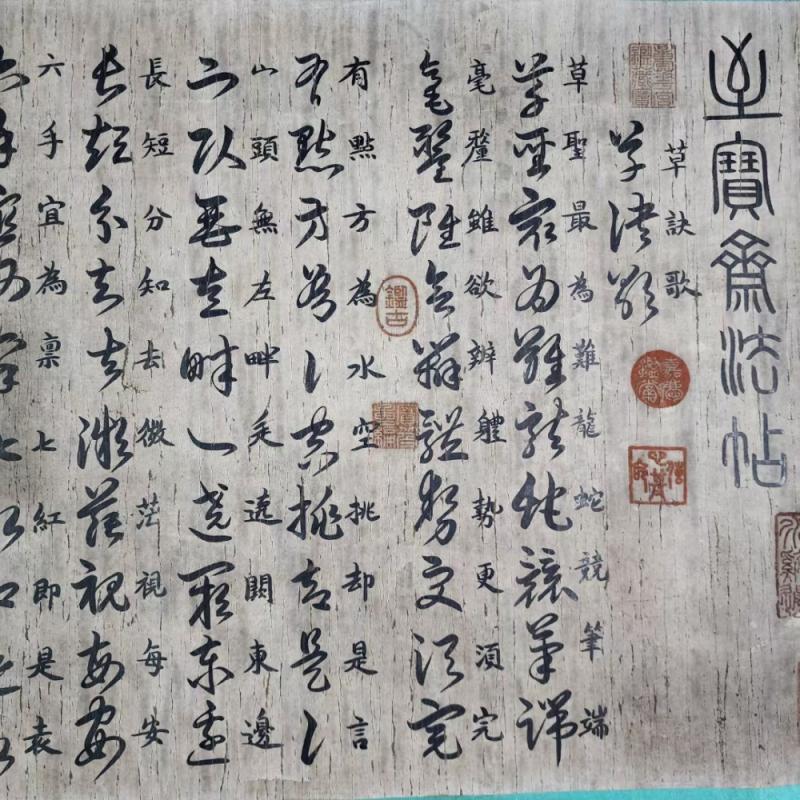 至寶齋法帖
草訣歌
草訣歌
草聖最為難龍蛇競筆端
草聖最為難龍蛇競筆端
毫釐雖欲辨軆勢更湏完
毫釐雖欲辨軆勢更湏完
有點方為水空挑却是言
有點方為水空挑却是言
山頭無左畔辵遶闕東邊
山頭無左畔辵遶闕東邊
長短分知去微茫視每安
長短分知去微茫視每安
六手宜為禀七紅即是袁
鑑古